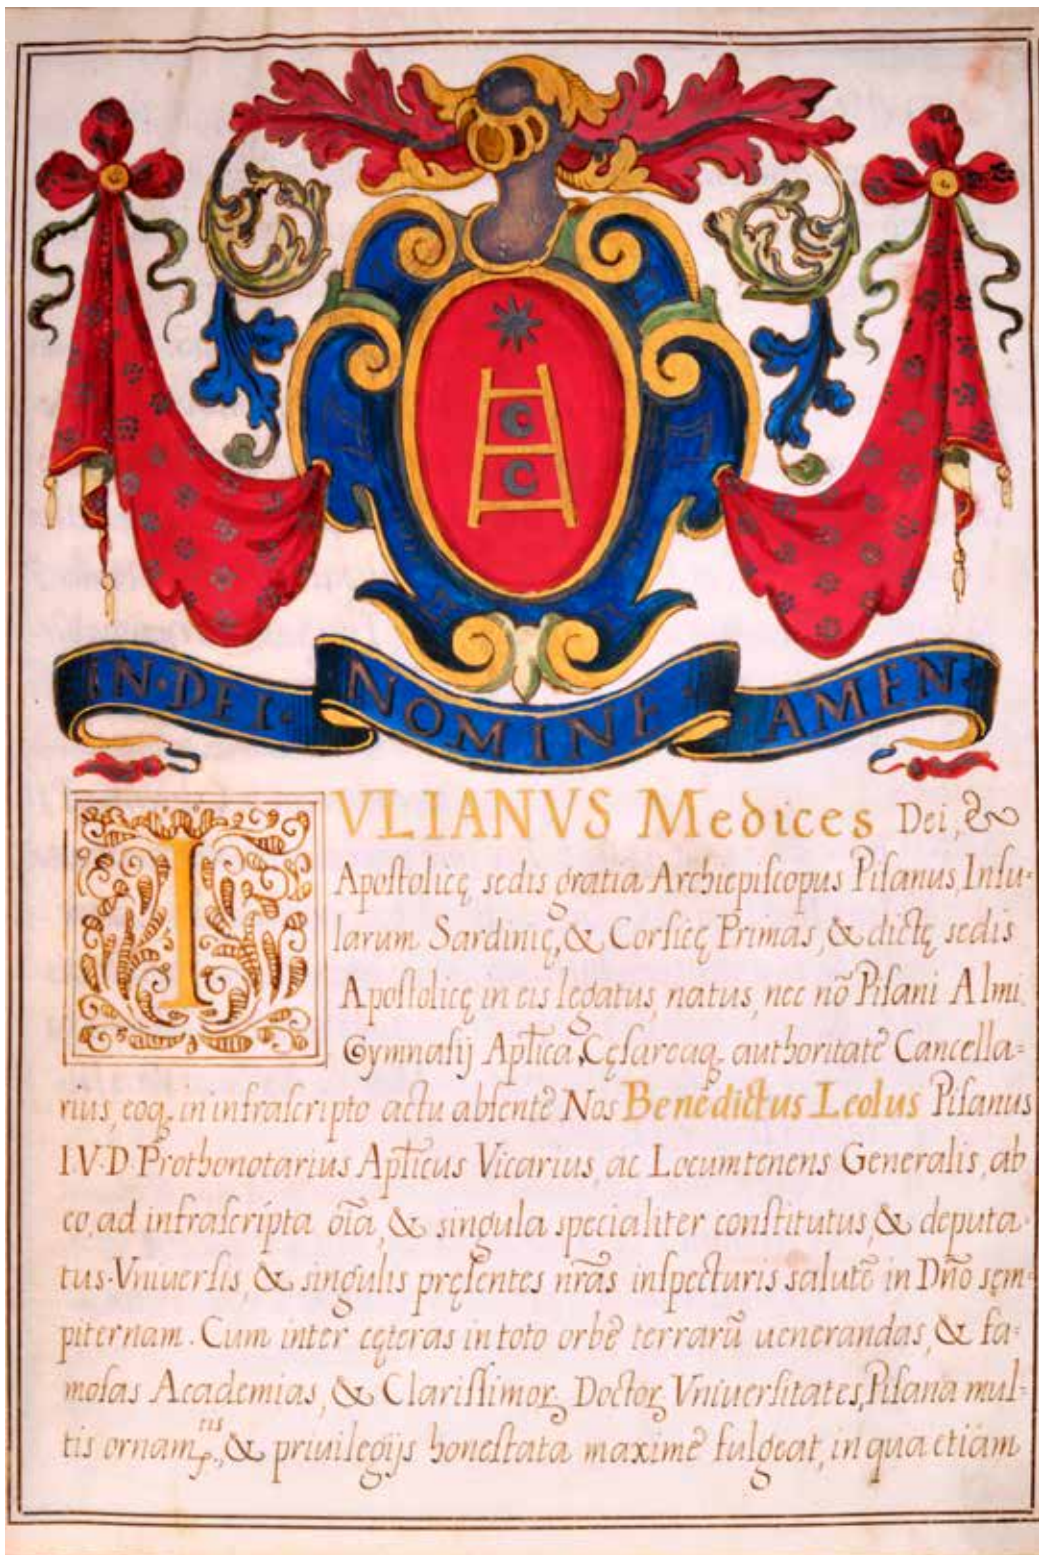 C
C
IN·DEI· NOMINE· ·AMEN·
IVLIANVS Medices Dei, &
Apostolicę sedis gratia Archiepiscopus Pisanus, Insu=
larum Sardinię, & Corsicę Primas, & dictę sedis
Apostolicę in eis legatus, natus, nec nõ Pisani Almi
Gymnasij Apl̃ica, Cęsareaq; authoritate Cancella=
rius, eoq; in infrascripto actu absente Nos Benedictus Leolus Pisanus
I.V.D. Prothonotarius Apl̃icus Vicarius, ac Locumtenens Generalis, ab
eo, ad infrascripta oĩa, & singula specialiter constitutus, & deputa-
tus. Vniuersis, & singulis pręsentes nr̃as inspecturis salutẽ in Dño sęm=
piternam. Cum inter cęteras in toto orbe terrarũ uenerandas, & fa=
mosas Academias, & Clarissimoꝝ Doctoꝝ Vniuersitates, Pisana mul=
tis ornam.tis, & priuilegijs honestata maxime fulgeat, in qua etiam